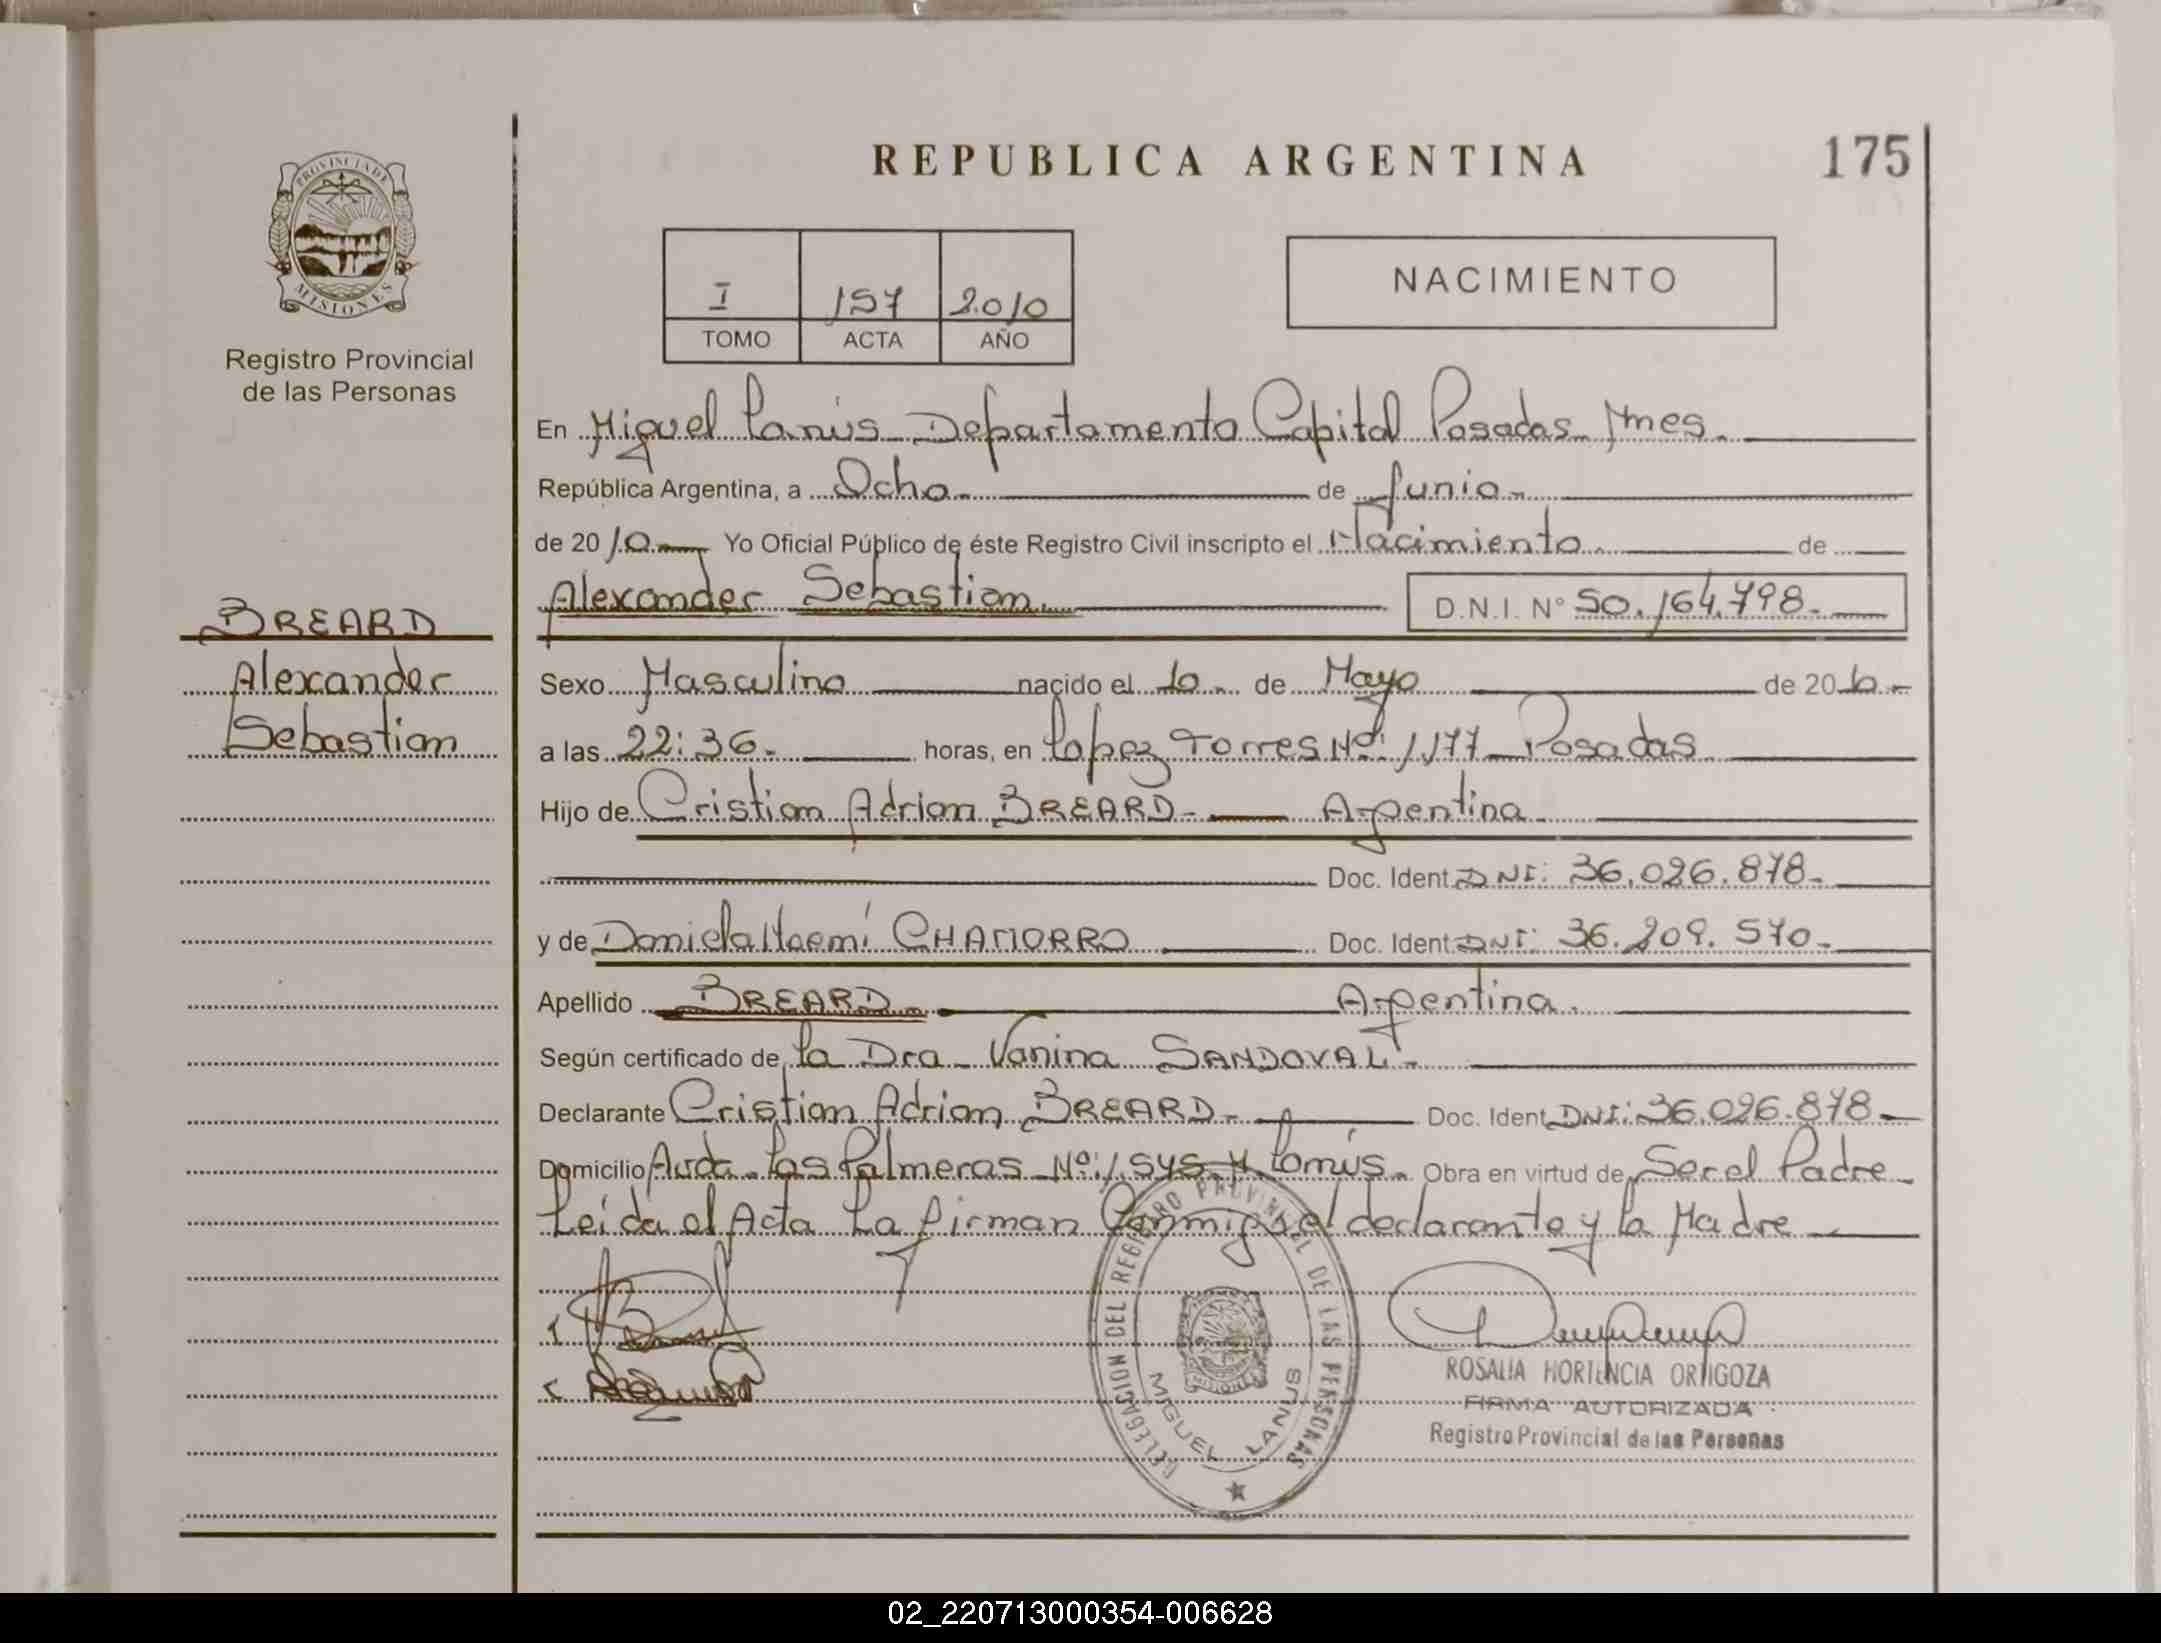 REPUBLICA ARGENTINA
175
PROVINCIA DE
MISIONES
Registro Provincial
de las Personas
I 157 2010
TOMO ACTA AÑO
NACIMIENTO
En Miguel Lanús Departamento Capital Posadas Mnes.
República Argentina, a Ocho de Junio
de 2010 Yo Oficial Público de éste Registro Civil inscripto el Nacimiento de
Alexander Sebastian D.N.I. N° 50.164.798.
BREARD
Alexander
Sebastian
Sexo Masculino nacido el 10 de Mayo de 2010
a las 22:36 horas, en Lopez Torres Nº: 1.177 Posadas
Hijo de Cristian Adrian BREARD Argentina
Doc. Ident. DNI: 36.026.878
y de Daniela Noemí CHAMORRO Doc. Ident. DNI: 36.209.570
Apellido BREARD Argentina
Según certificado de La Dra Vanina SANDOVAL
Declarante Cristian Adrian BREARD Doc. Ident. DNI: 36.026.878
Domicilio Avda. Las Palmeras Nº: 1.545 M. Lanús. Obra en virtud de Ser el Padre
Leída el Acta La firman Conmigo el declarante y la Madre
DELEGACION DEL REGISTRO PROVINCIAL DE LAS PERSONAS
MIGUEL LANUS
ROSALIA HORTENCIA ORTIGOZA
FIRMA AUTORIZADA
Registro Provincial de las Personas
02_220713000354-006628